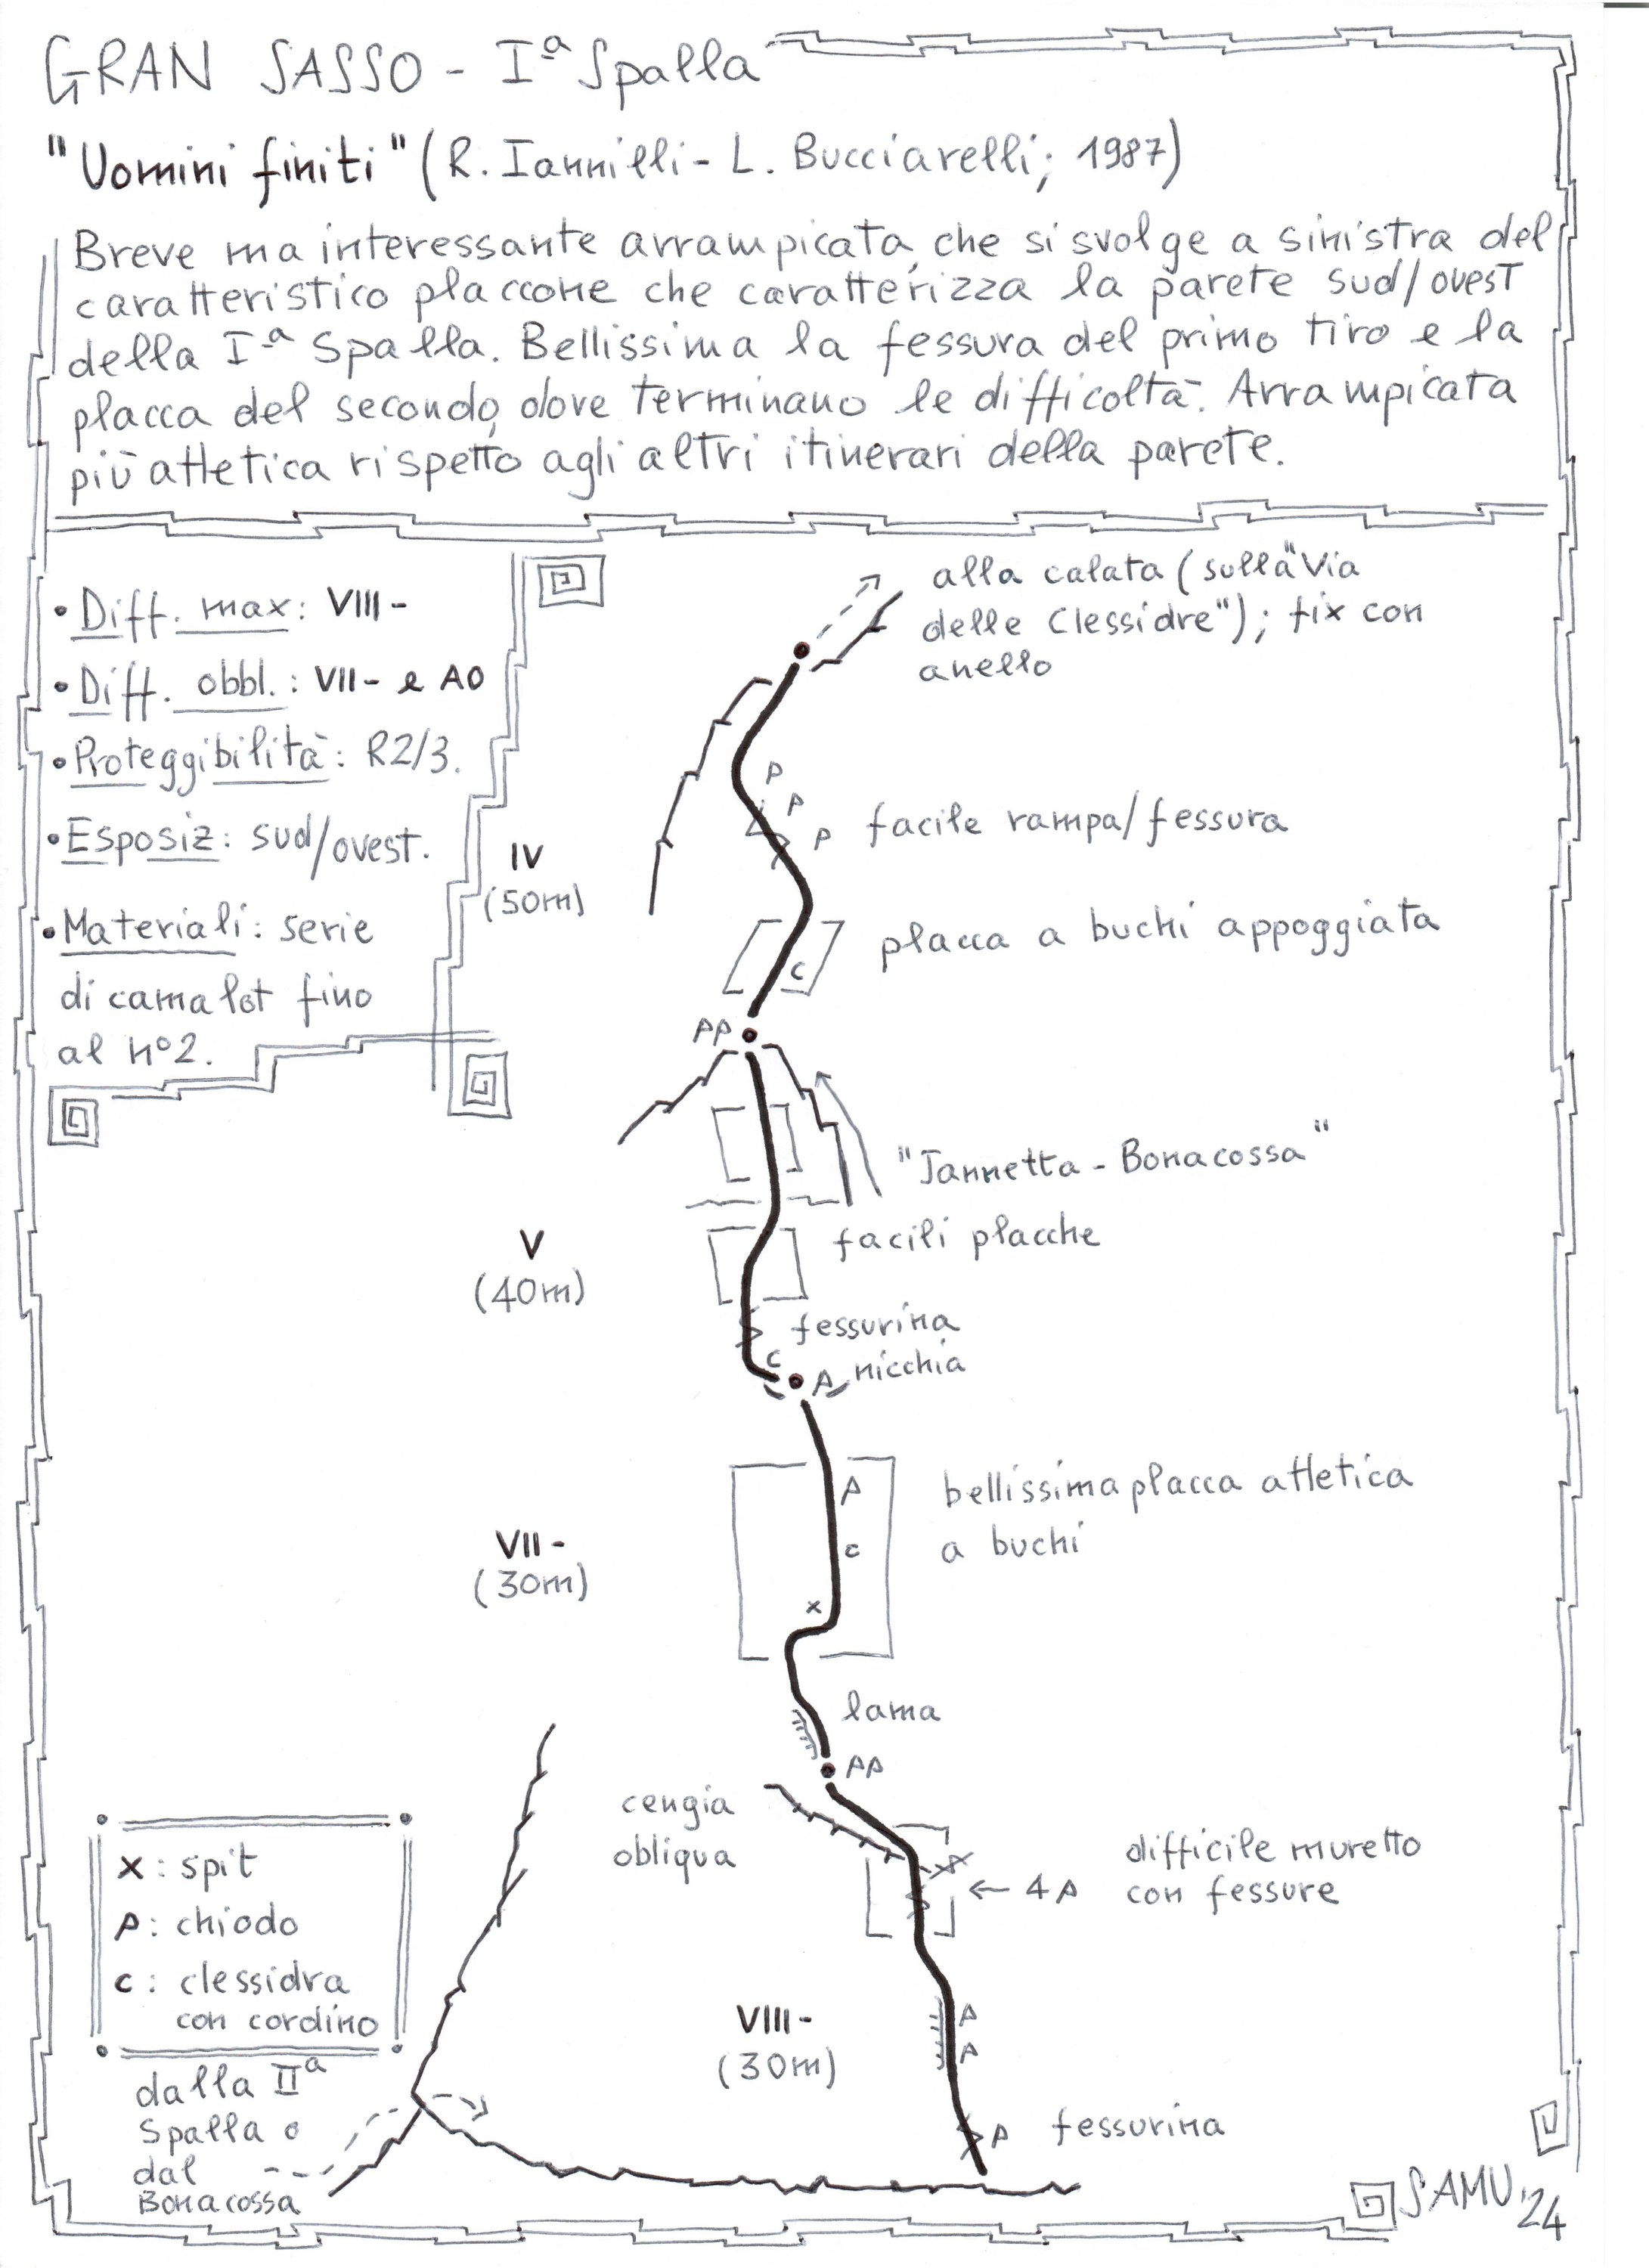 GRAN SASSO - Iª Spalla
"Uomini finiti" (R. Iannilli - L. Bucciarelli; 1987)
Breve ma interessante arrampicata, che si svolge a sinistra del
caratteristico placcone che caratterizza la parete sud/ovest
della Iª Spalla. Bellissima la fessura del primo tiro e la
placca del secondo, dove terminano le difficoltà. Arrampicata
più atletica rispetto agli altri itinerari della parete.
• Diff. max: VIII -
• Diff. obbl.: VII- e A0
• Proteggibilità: R2/3.
• Esposiz: sud/ovest.
• Materiali: serie
di camalot fino
al n°2.
alla calata (sulla "Via
delle Clessidre"); fix con
anello
P
P
P
facile rampa/fessura
IV
(50m)
placca a buchi appoggiata
C
PP
"Jannetta - Bonacossa"
facili placche
V
(40m)
fessurina
C
P
nicchia
P
bellissima placca atletica
a buchi
C
VII -
(30m)
x
lama
PP
cengia
obliqua
difficile muretto
con fessure
← 4P
VIII -
(30m)
P
P
P
fessurina
x: spit
P: chiodo
c: clessidra
con cordino
dalla IIª
Spalla o
dal
Bonacossa
SAMU '24